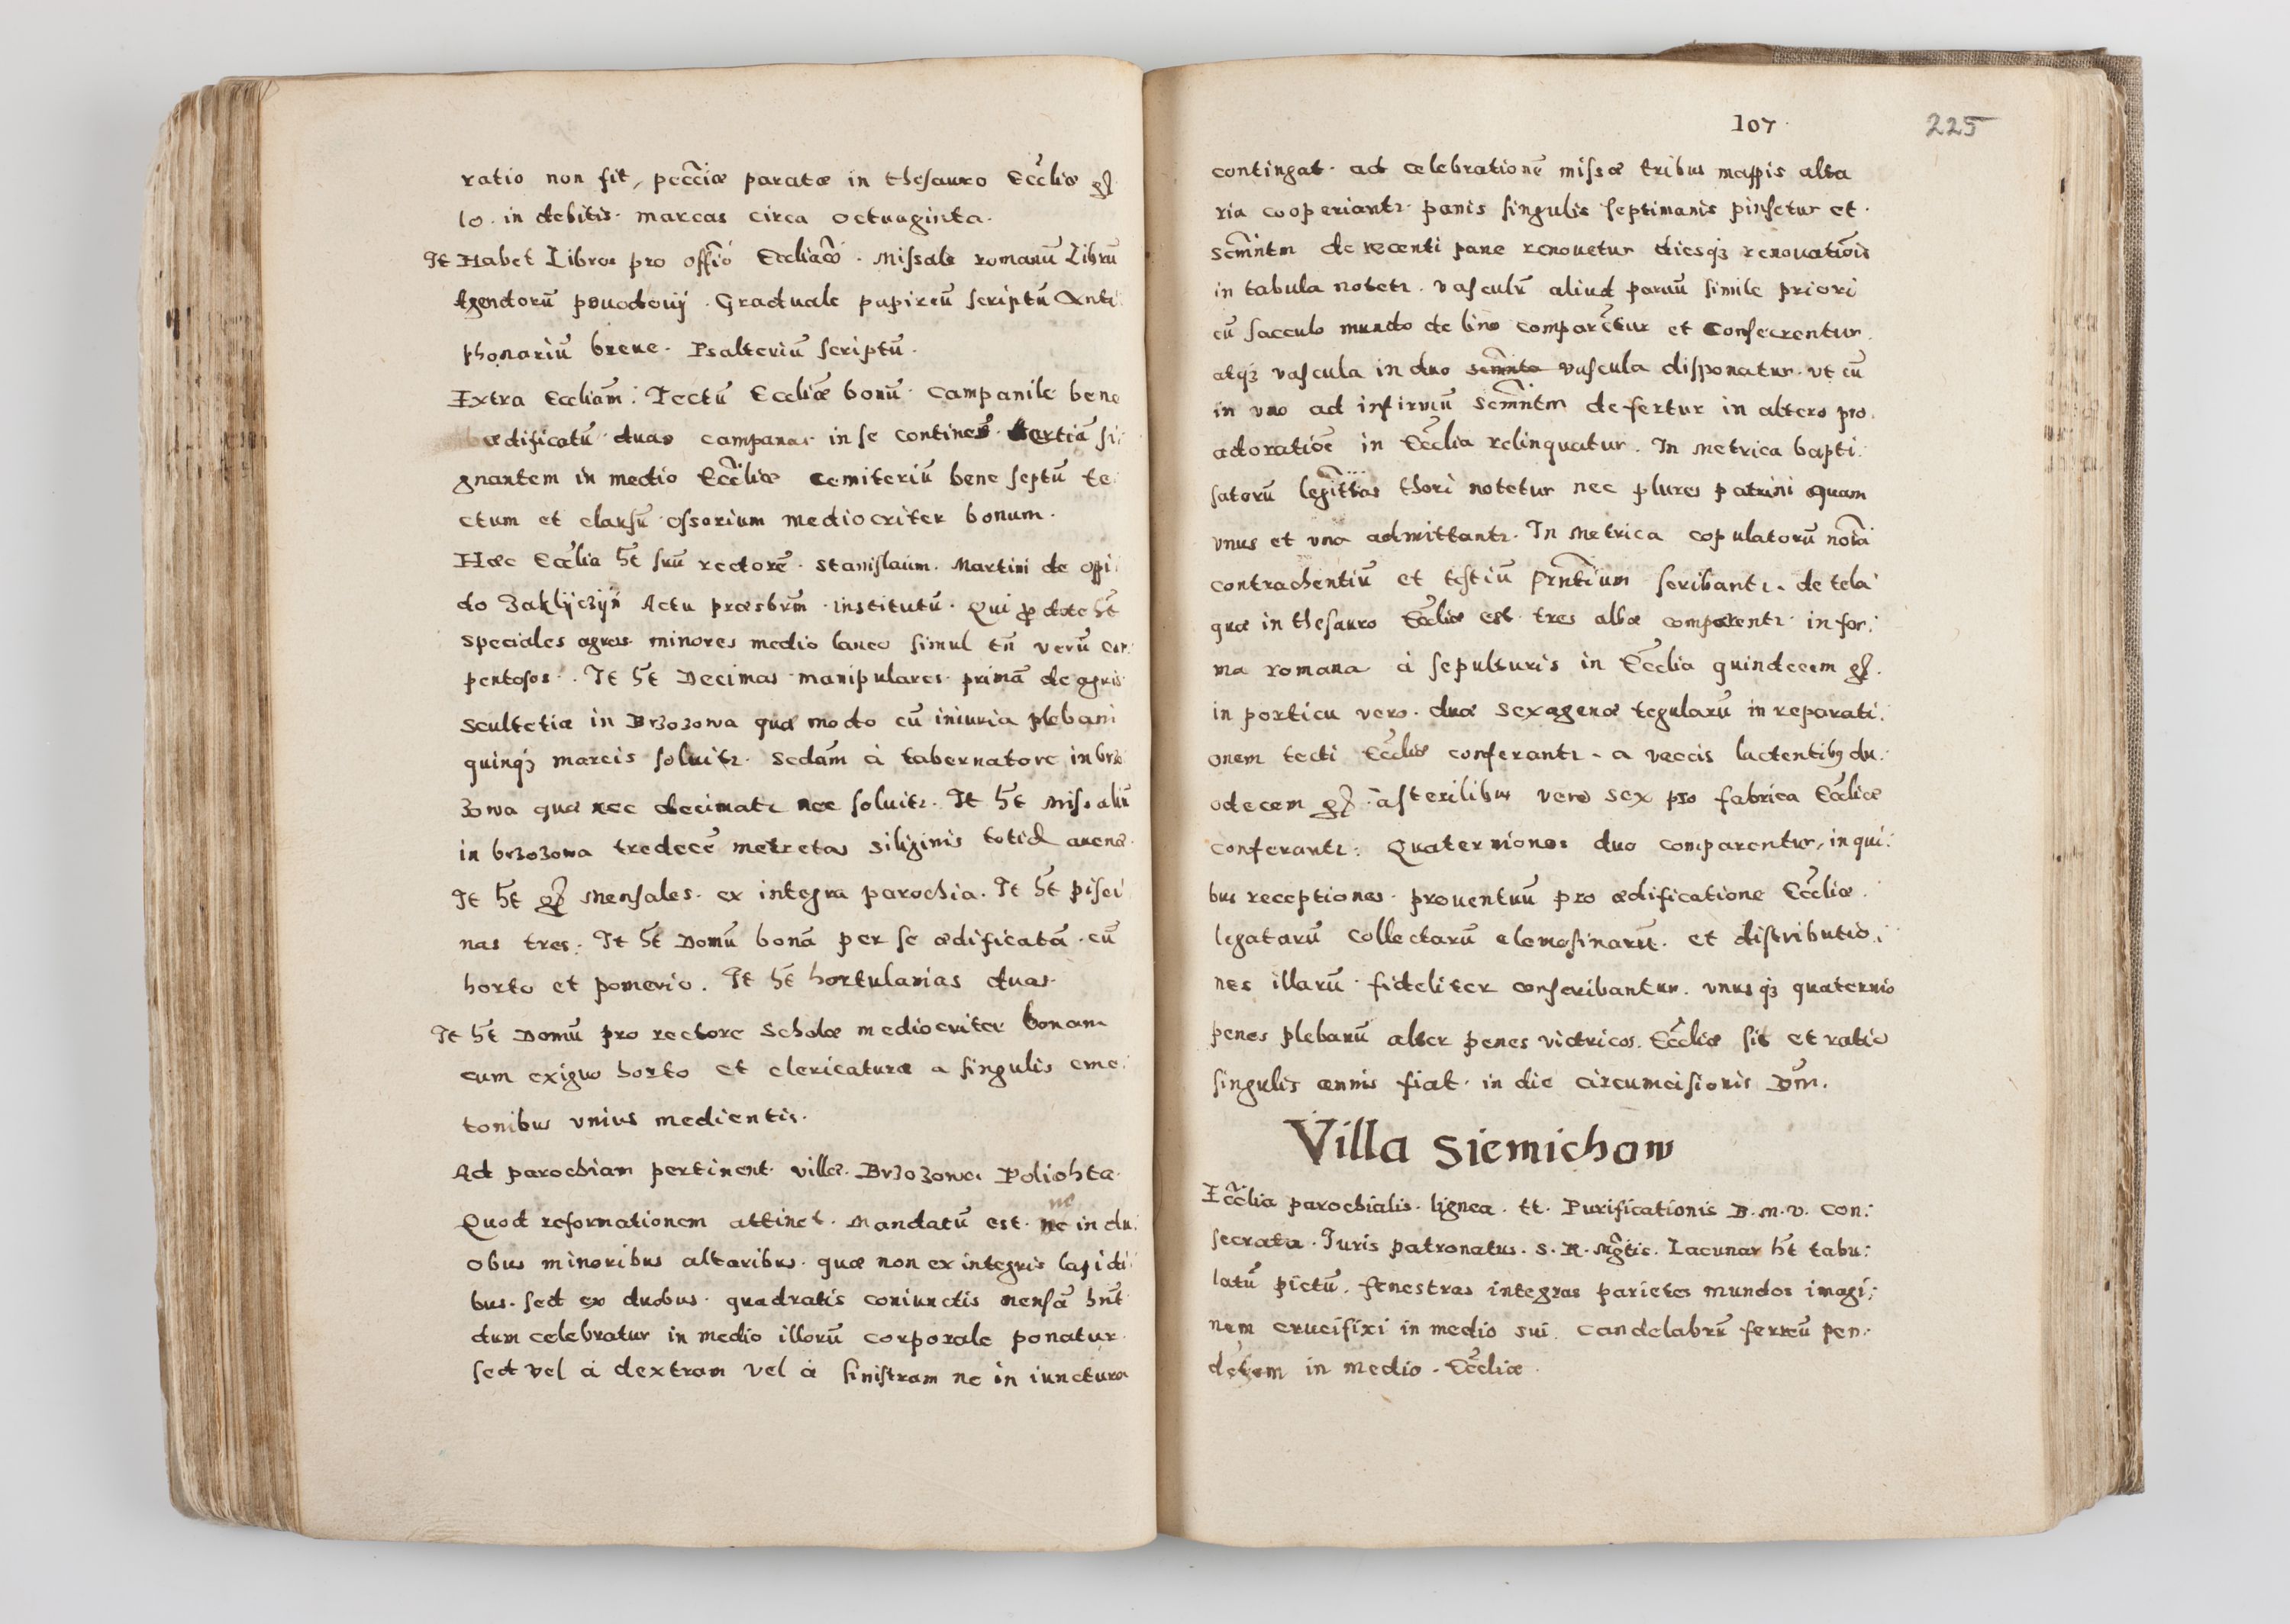 ratio non fit, pecc̃iæ paratæ in thesauro Eccl̃iæ gͬ
10. in debitis. marcas circa octuaginta.
It Habet Libros pro offic̃io Eccliac̃o. Missale romanũ Librũ
Agendorũ Graduale papireũ scriptũ Anti:
phonariũ breue. Psalteriũ scriptũ.
Extra Eccliam̃: Tectũ Ecclĩæ bonũ. Campanile bene
ædificatũ duas campanas in se continens. tertiã si:
gnantem in medio Eccl̃iæ Cemiteriũ bene septũ te:
ctum et clausũ ossorium mediocriter bonum.
Hæc Eccl̃ia h̃t suũ rectorẽ. Stanislaum. Martini de oppi:
do Zaklÿczÿn Actu præsbrm̃. institutũ. Qui ꝓ dote h̃t
speciales agros minores medio laneo simul tñ verũ car:
pentosos. It h̃t Decimas manipulares primã de agris
scultetiæ in Brzozowa quæ modo cũ iniuria plebani
quinqȝ marcis soluitr. Sedam̃ à tabernatore in brzo
zowa quæ nec decimatr nec soluitr. It h̃t missaliũ
in brzozowa tredecẽ metretas siliginis totid auenæ.
It h̃t gͬ Mensales. ex integra parochia. It h̃t pisci
nas tres. It h̃t Domũ bonã per se ædificatã. cũ
horto et pomerio. It h̃t hortulanias duas.
It h̃t Domũ pro rectore Scholæ mediocriter bonam
cum exiguo horto et clericaturæ a singulis cme:
tonibus vnius medientis.
Ad parochiam pertinent villæ. Brzozowa Polichta.
Quod reformationem attinet. Mandatũ est. ne in du:
obus minoribus altaribus. quæ non ex integris lapidi:
bus. sed ex duobus. quadratis coniunctis mensã hñt
dum celebratur in medio illorũ corporale ponatur.
sed vel à dextram vel à sinistram ne in iunctura
107.
225
contingat. ad celebrationẽ missæ tribus mappis alta
ria cooperiantr. panis singulis septimanis pinsetur et.
Scm̃ntm de recenti pane renouetur diesqȝ renouatiõis
in tabula notetr. vasculũ aliud paruũ simile priori
cũ sacculo mundo de lino comparẽtur et Consecrentur.
atqȝ vascula in duo scm̃nta vascula disponatur. vt cũ
in vno ad infirmũ Scm̃ntm defertur in altero pro.
adoratiõe in Eccl̃ia relinquatur. In metrica bapti:
satorũ legitt̃as thori notetur nec plures patrini quam
vnus et vna admittantr. In metrica copulatorũ noĩa
contrahentiũ et testiũ prñtium scribantr. de tela
quæ in thesauro Eccl̃iæ est. tres albæ comparentr. in for:
ma romana à sepulturis in Eccl̃ia quindecem gͬ.
in porticu vero. duæ sexagenæ tegularũ in reparati:
onem tecti Eccl̃iæ conferantr. a vaccis lactentibȝ du:
odecem gͬ. à sterilibus vero sex pro fabrica Eccl̃iæ
conferantr: Quaterniones duo comparentur, in qui:
bus receptiones. prouentuũ pro ædificatione Eccl̃iæ.
legatarũ collectarũ elemosinarũ. et distributio:
nes illarũ fideliter conscribantur. vnusqȝ quaternio
penes plebanũ alter penes victricos. Eccl̃iæ sit et ratio
singulis annis fiat. in die circumcisionis Dm̃.
Villa Siemichow
Eccl̃ia parochialis. lignea. tt. Purificationis B. M. V. con:
secrata. Juris patronatus. S. R. Mg̃tis. Lacunar h̃t tabu:
latũ pictũ. fenestras integras parietes mundos imagi:
nem crucifixi in medio sui. candelabrũ ferreũ pen:
dẽtem in medio. Eccl̃iæ.